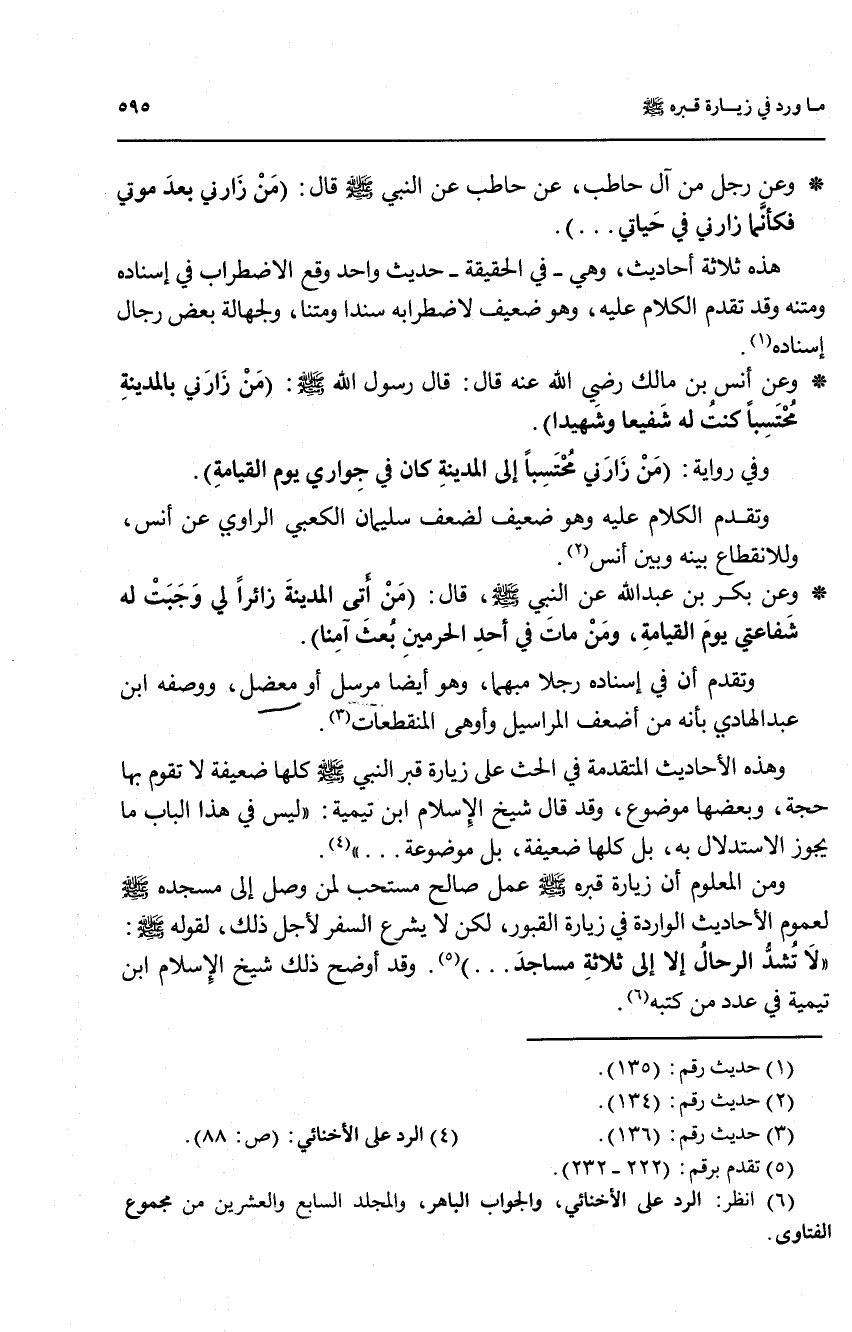 ما ورد في زيـارة قـبره ﷺ ٥٩٥
* وعن رجل من آل حاطب، عن حاطب عن النبي ﷺ قال: (مَنْ زَارني بعدَ موتي
فكأنَّما زارني في حَياتي...).
هذه ثلاثة أحاديث، وهي - في الحقيقة - حديث واحد وقع الاضطراب في إسناده
ومتنه وقد تقدم الكلام عليه، وهو ضعيف لاضطرابه سندا ومتنا، ولجهالة بعض رجال
إسناده(١).
* وعن أنس بن مالك رضي الله عنه قال: قال رسول الله ﷺ: (مَنْ زَارَني بالمدينةِ
مُحْتَسِباً كنتُ له شَفيعا وشَهيدا).
وفي رواية: (مَنْ زَارَني مُحْتَسِباً إلى المدينةِ كان في جِواري يوم القيامةِ).
وتقـدم الكلام عليه وهو ضعيف لضعف سليمان الكعبي الراوي عن أنس،
وللانقطاع بينه وبين أنس(٢).
* وعن بكـر بن عبدالله عن النبي ﷺ، قال: (مَنْ أَتى المدينةَ زائراً لي وَجَبَتْ له
شَفاعتي يومَ القيامةِ، ومَنْ ماتَ في أحدِ الحرمينِ بُعثَ آمِنا).
وتقدم أن في إسناده رجلا مبهما، وهو أيضا مرسل أو معضل، ووصفه ابن
عبدالهادي بأنه من أضعف المراسيل وأوهى المنقطعات(٣).
وهذه الأحاديث المتقدمة في الحث على زيارة قبر النبي ﷺ كلها ضعيفة لا تقوم بها
حجة، وبعضها موضوع، وقد قال شيخ الإسلام ابن تيمية: «ليس في هذا الباب ما
يجوز الاستدلال به، بل كلها ضعيفة، بل موضوعة...»(٤).
ومن المعلوم أن زيارة قبره ﷺ عمل صالح مستحب لمن وصل إلى مسجده ﷺ
لعموم الأحاديث الواردة في زيارة القبور، لكن لا يشرع السفر لأجل ذلك، لقوله ﷺ:
«لَا تُشدُّ الرحالُ إلا إلى ثلاثةِ مساجدَ...)(٥). وقد أوضح ذلك شيخ الإسلام ابن
تيمية في عدد من كتبه(٦).
(١) حديث رقم: (١٣٥).
(٢) حديث رقم: (١٣٤).
(٣) حديث رقم: (١٣٦). (٤) الرد على الأخنائي: (ص: ٨٨).
(٥) تقدم برقم: (٢٢٢ - ٢٣٢).
(٦) انظر: الرد على الأخنائي، والجواب الباهر، والمجلد السابع والعشرين من مجموع
الفتاوى.